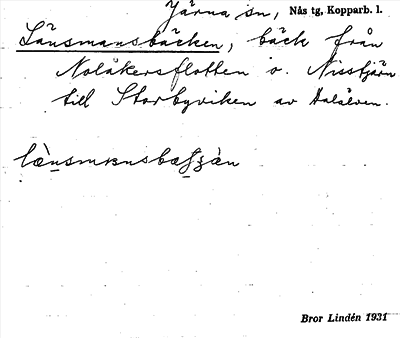 Järna sn, Nås tg, Kopparb. l.
Länsmansbäcken, bäck från
Nolåkersflotten o. Nisstjärn
till Storbyviken av Dalälven.
Bror Lindén 1931